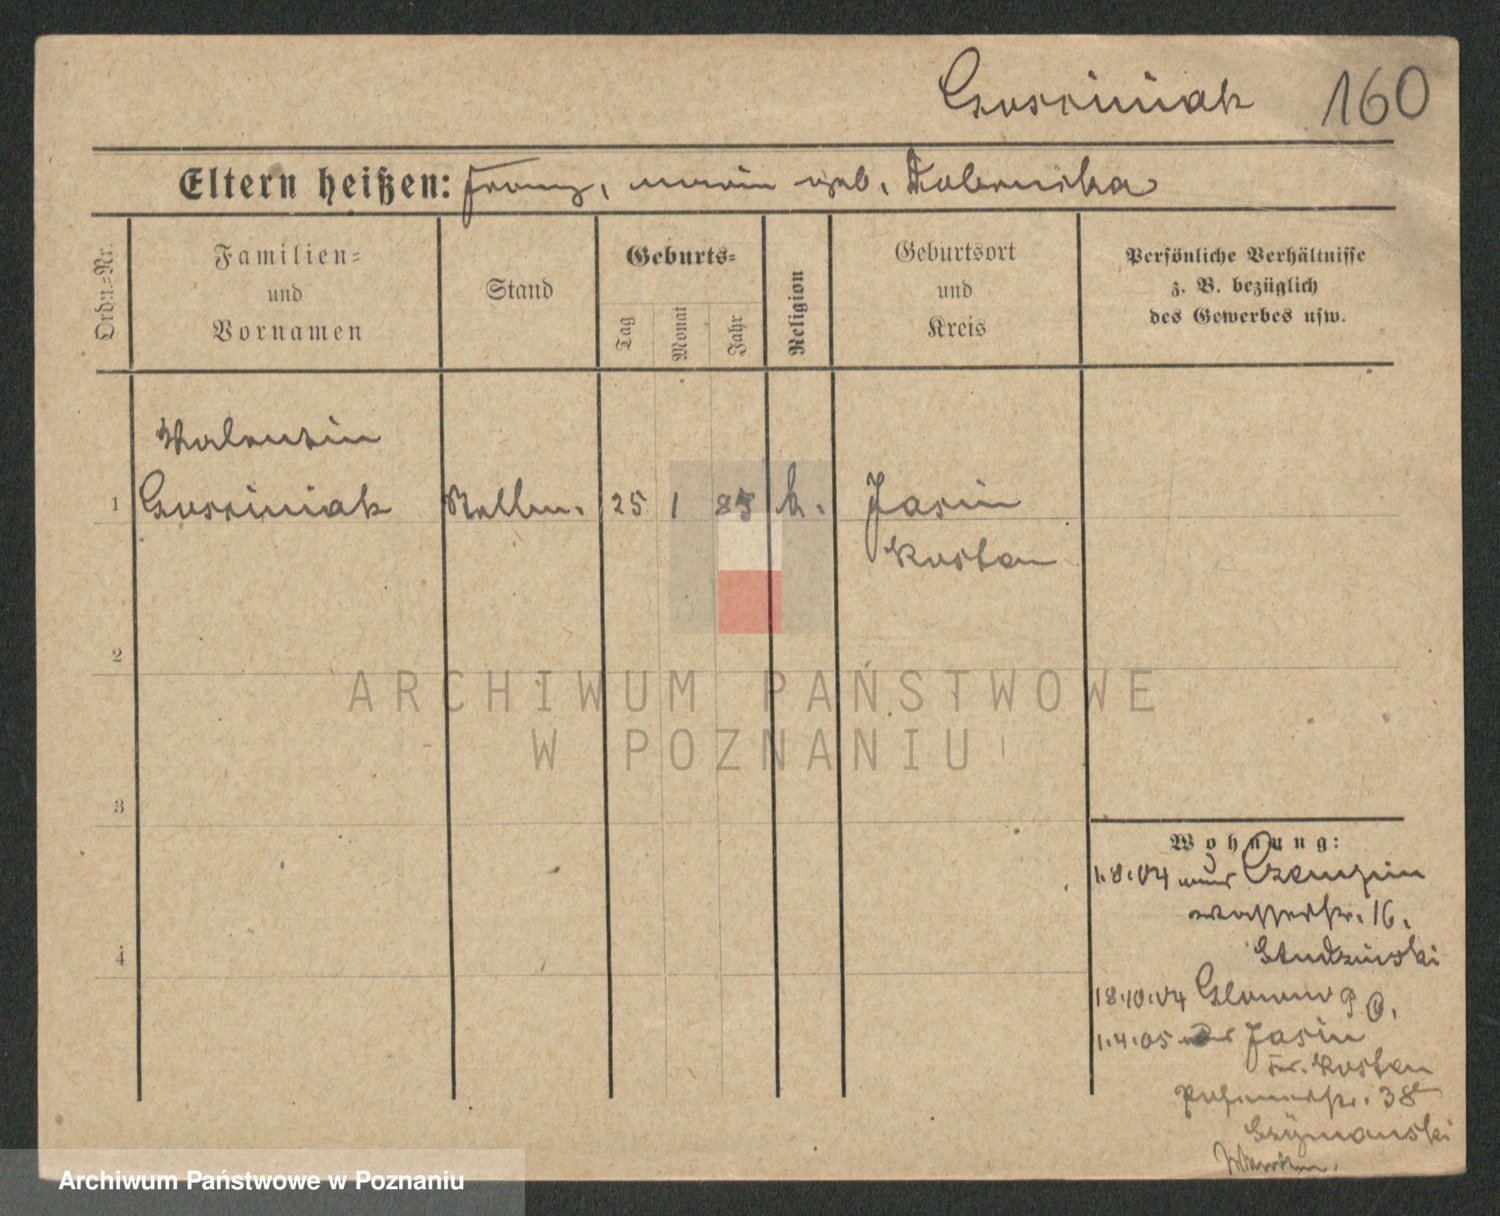 Gościniak 160
Eltern heißen: Franz, Maria geb.
Ordn.=Nr.
Familien=
und
Vornamen
Stand
Geburts=
Tag
Monat
Jahr
Religion
Geburtsort
und
Kreis
Persönliche Verhältnisse
z. B. bezüglich
des Gewerbes usw.
Valentin
1 Gosciniak Kelln. 25 1 85 k. Jasin
Kosten
2
ARCHIWUM PAŃSTWOWE
W POZNANIU
3
4
Wohnung:
1.8.04 aus Czempin
Wasserstr. 16.
Studzinski
18.10.04 Glowno
1.4.05 aus Jasin
Kr. Kosten
Posenerstr. 38
Szymanski
Archiwum Państwowe w Poznaniu